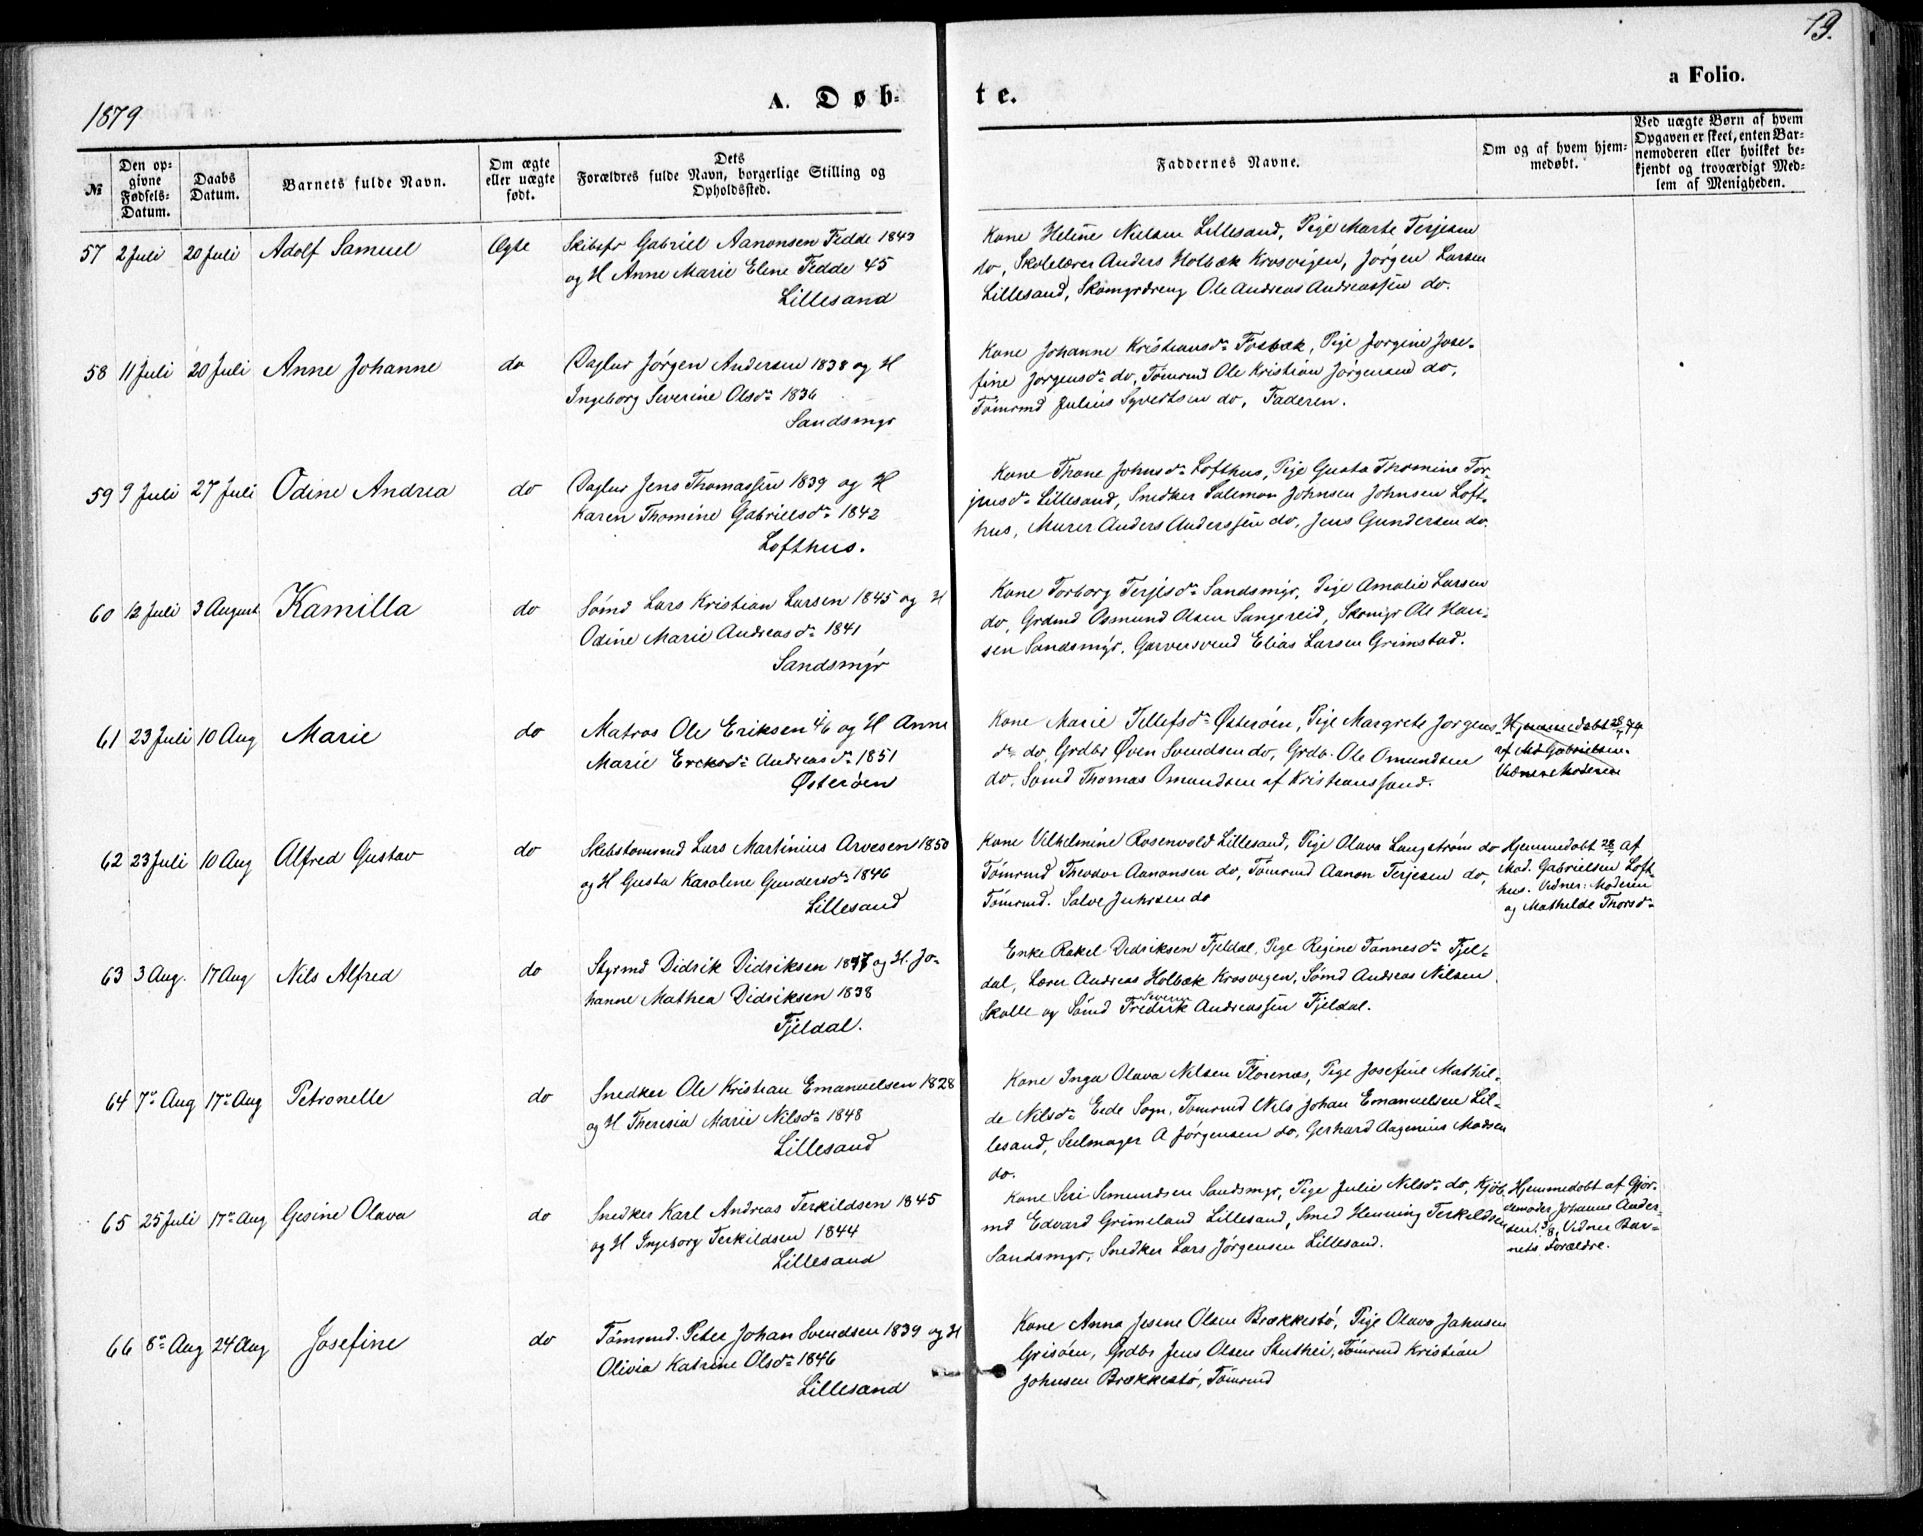 19.
a Folio.
1879
A. Døb-
te.
№
Den op-
givne
Fødsels-
Datum.
Daabs
Datum.
Barnets fulde Navn.
Om ægte
eller uægte
født.
Dets
Forældres fulde Navn, borgerlige Stilling og
Opholdssted.
Faddernes Navne.
Om og af hvem hjem-
medøbt.
Ved uægte Børn af hvem
Opgaven er skeet, enten Bar-
nemoderen eller hvilket be-
kjendt og troværdigt Med-
lem af Menigheden.
57 2 Juli 20 Juli Adolf Samuel Ægte
Skibsfr Gabriel Aanonsen Fedde 1843
og H Anne Marie Elene Fedde 45
Lillesand
Kone Heline Nielsen Lillesand, Pige Marte Terjesen
do, Skolelærer Anders Holbæk Krosvigen, Jørgen Larsen
Lillesand, Skomgrdreng Ole Andreas Andreassen do.
58 11 Juli 20 Juli Anne Johanne do
Daglur Jørgen Andersen 1838 og H
Ingeborg Severine Olsdr 1836
Sandsmyr
Kone Johanne Kristiansdr Fosbæk, Pige Jørgine Jose-
fine Jørgensdr do, Tømrmd Ole Kristian Jørgensen do,
Tømrmd Julius Syvertsen do, Faderen.
59 9 Juli 27 Juli Odine Andrea do
Daglur Jens Thomassen 1839 og H
Karen Thomine Gabrielsdr 1842
Lofthus.
Kone Thone Johnsdr Lofthus, Pige Gusta Thomine Tor-
jusdr Lillesand, Snedker Salemon Johnsen Johnsen Loft-
hus, Murer Anders Anderssen do, Jens Gundersen do.
60 12 Juli 3 August Kamilla do
Sømd Lars Kristian Larsen 1845 og H
Odine Marie Andreasdr 1841
Sandsmyr
Kone Torborg Terjesdr Sandsmyr, Pige Amalie Larsen
do, Grdmd Osmund Olsen Sangereid, Skomgr Ole Han-
sen Sandsmyr, Garversvend Elias Larsen Grimstad.
61 23 Juli 10 Aug Marie do
Matros Ole Eriksen 46 og H Anne
Marie Ericksdr Andreasdr 1851
Østerøen
Kone Marie Tellefsdr Østerøen, Pige Margrete Jørgens-
dr do, Grdbr Øven Svendsen do, Grdb. Ole Omundsen
do, Sømd Thomas Omundsen af Kristianssand.
Hjemmedøbt 28/7 79
af Md Gabrielsen.
Vidner Moderen
62 23 Juli 10 Aug Alfred Gustav do
Skibstømmd Lars Martinius Arvesen 1850
og H Gusta Karoline Gundersdr 1846
Lillesand
Kone Vilhelmine Rosenvold Lillesand, Pige Olava Langstrøm do
Tømrmd Theodor Aanonsen do, Tømrmd Aanon Terjesen do,
Tømrmd. Salve Juhlsen do
Hjemmedøbt 28/7 af
Mad. Gabrielsen Loft-
hus. Vidner: Moderen
og Mathilde Thorsdr
63 3 Aug. 17 Aug Nils Alfred do
Styrmd Didrik Didriksen 1847 og H. Jo-
hanne Mathea Didriksen 1838
Fjeldal.
Enke Rakel Didriksen Fjeldal, Pige Regine Tannesdr Fjel-
dal, Lærer Andreas Holbæk Krosvigen, Sømd Andreas Nilsen
Skalle og Sømd Fredrik Severin Andreassen Fjeldal.
64 7de Aug 17de Aug Petronelle do
Snedker Ole Kristian Emanuelsen 1828
og H Theresia Marie Nilsdr 1848
Lillesand
Kone Inga Olava Nilsen Florenæs, Pige Josefine Mathil-
de Nilsdr Eide Sogn, Tømrmd Nils Johan Emanuelsen Lil-
lesand, Seilmager A Jørgensen do, Gerhard Aagenius Madsen
do.
65 25 Juli 17de Aug Gesine Olava do
Snedker Karl Andreas Terkildsen 1845
og H Ingeborg Terkildsen 1844
Lillesand
Kone Seri Simundsen Sandsmyr, Pige Julie Nilsdr do, Kjøb-
md Edvard Grimeland Lillesand, Smed Henning Terkildsen
Sandsmyr, Snedker Lars Jørgensen Lillesand.
Hjemmedøbt af Gjor-
demoder Johanne Ander-
sen 3/8, Vidner Bar-
nets Forældre.
66 8de Aug 24 Aug Josefine do
Tømrmd. Peter Johan Svendsen 1839 og H
Olivia Katrine Olsdr 1846
Lillesand
Kone Anna Jesine Olsen Brækkestø, Pige Olava Jahnsen
Grisøen, Grdbr Jens Olsen Stuthei, Tømrmd Kristian
Johnsen Brækkestø, Tømrmd